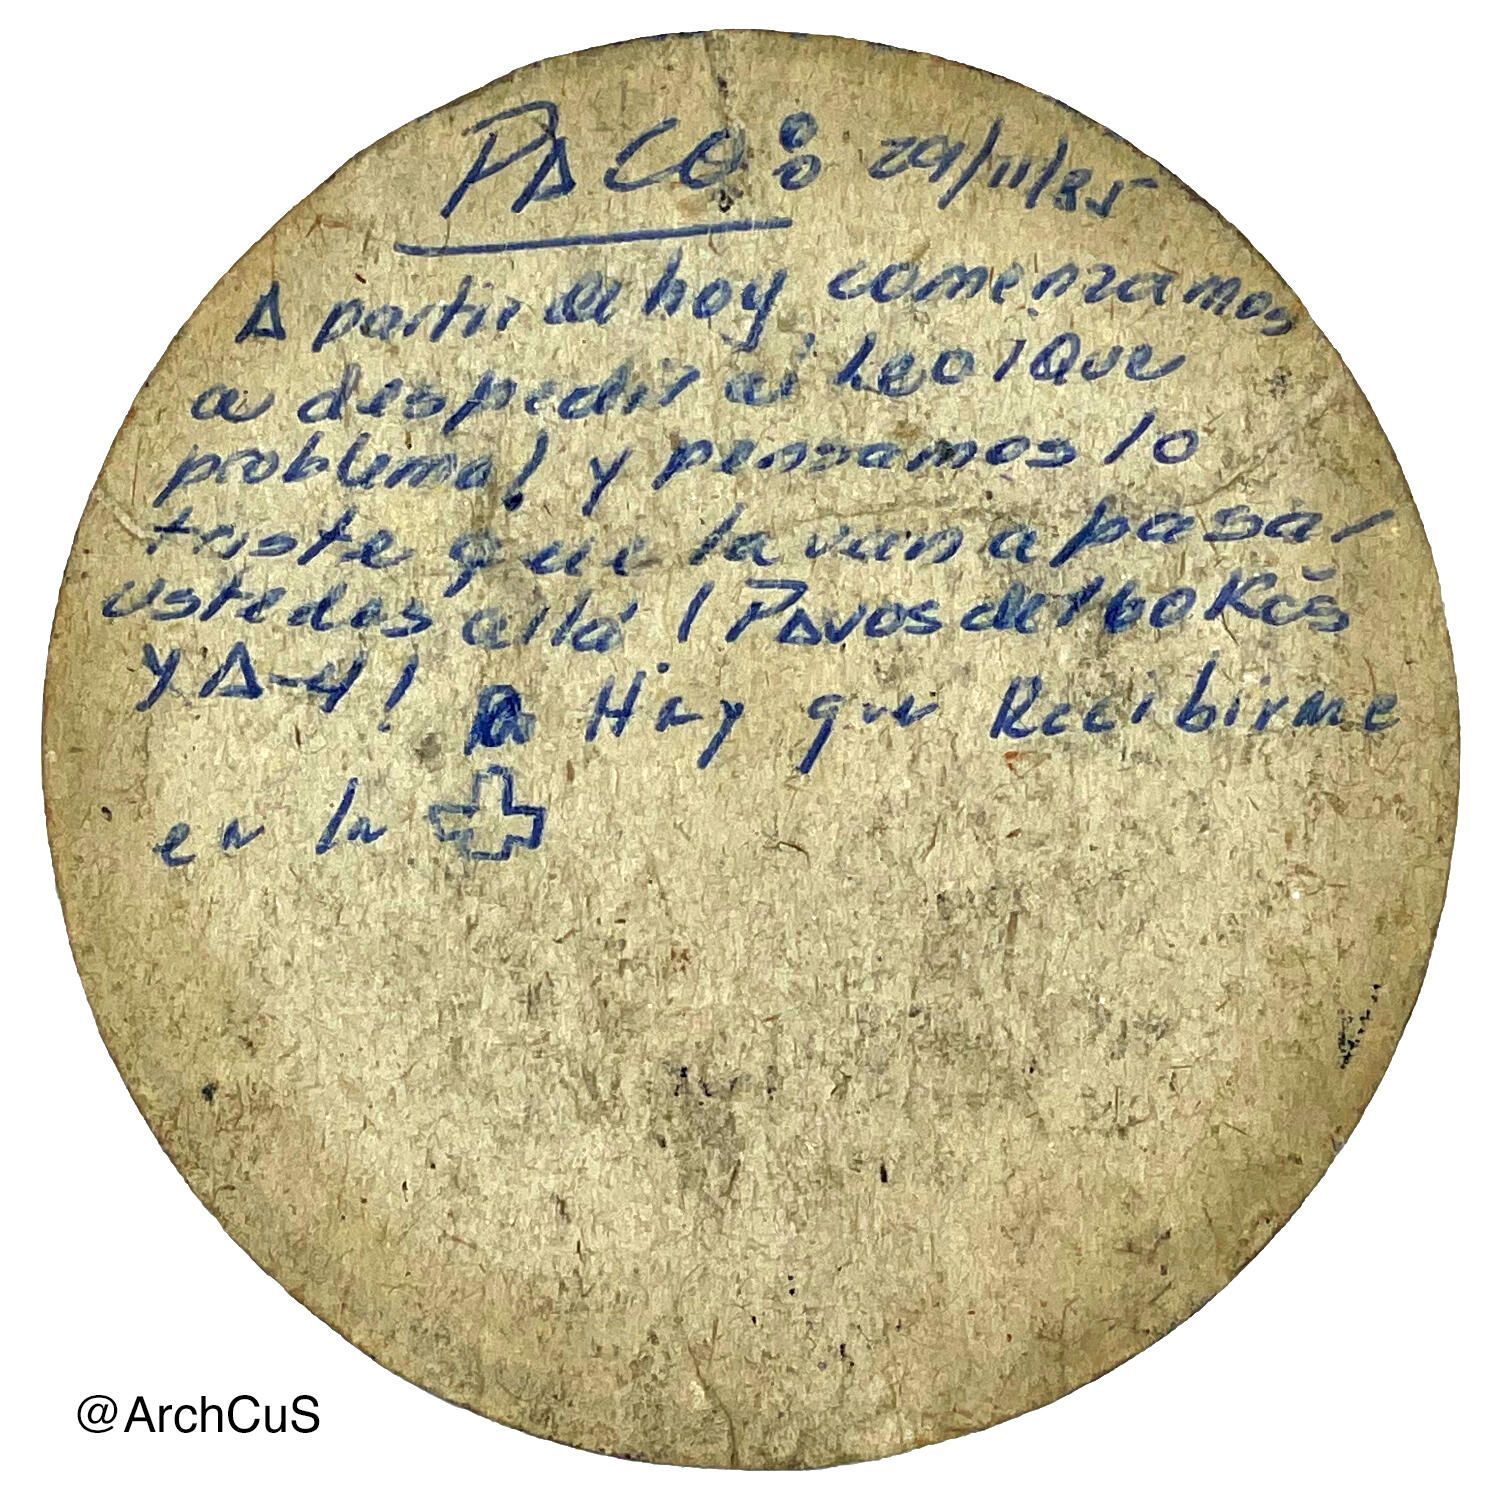 PACO: 29/11/85
A partir de hoy comenzamos
a despedir a Leo ¡Que
problema! y pensamos lo
triste que la van a pasar
ustedes allá ¡Pavos del
y A-4! Hay que Recibirme
en la
@ArchCuS